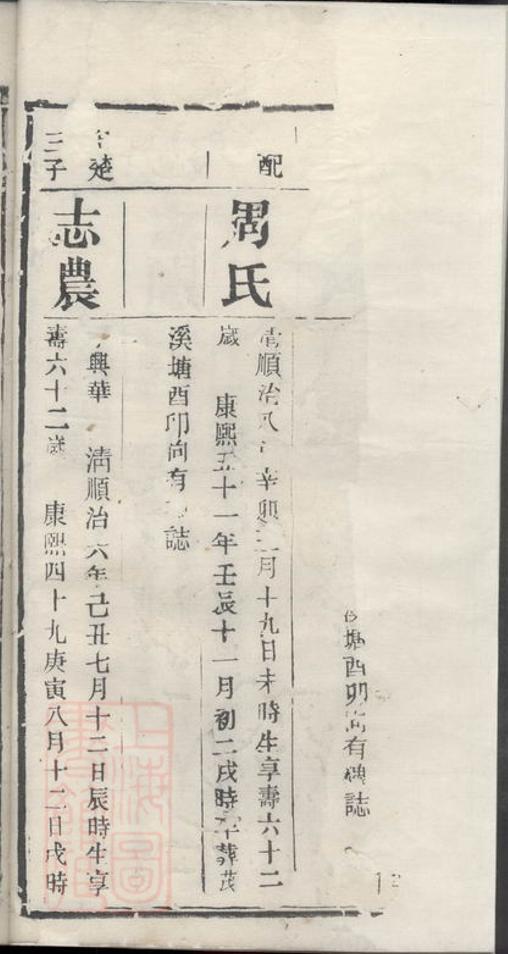 塘酉卯向有碑誌
配
周氏
清順治八年辛卯 月十九日未時生享壽六十二
歲 康熙五十一年壬辰十一月初二戌時卒葬茂
溪塘酉卯向有 誌
楚
三子
志農
興華 清順治六年己丑七月十二日辰時生享
壽六十二歲 康熙四十九庚寅八月十二日戌時
上海圖書館藏